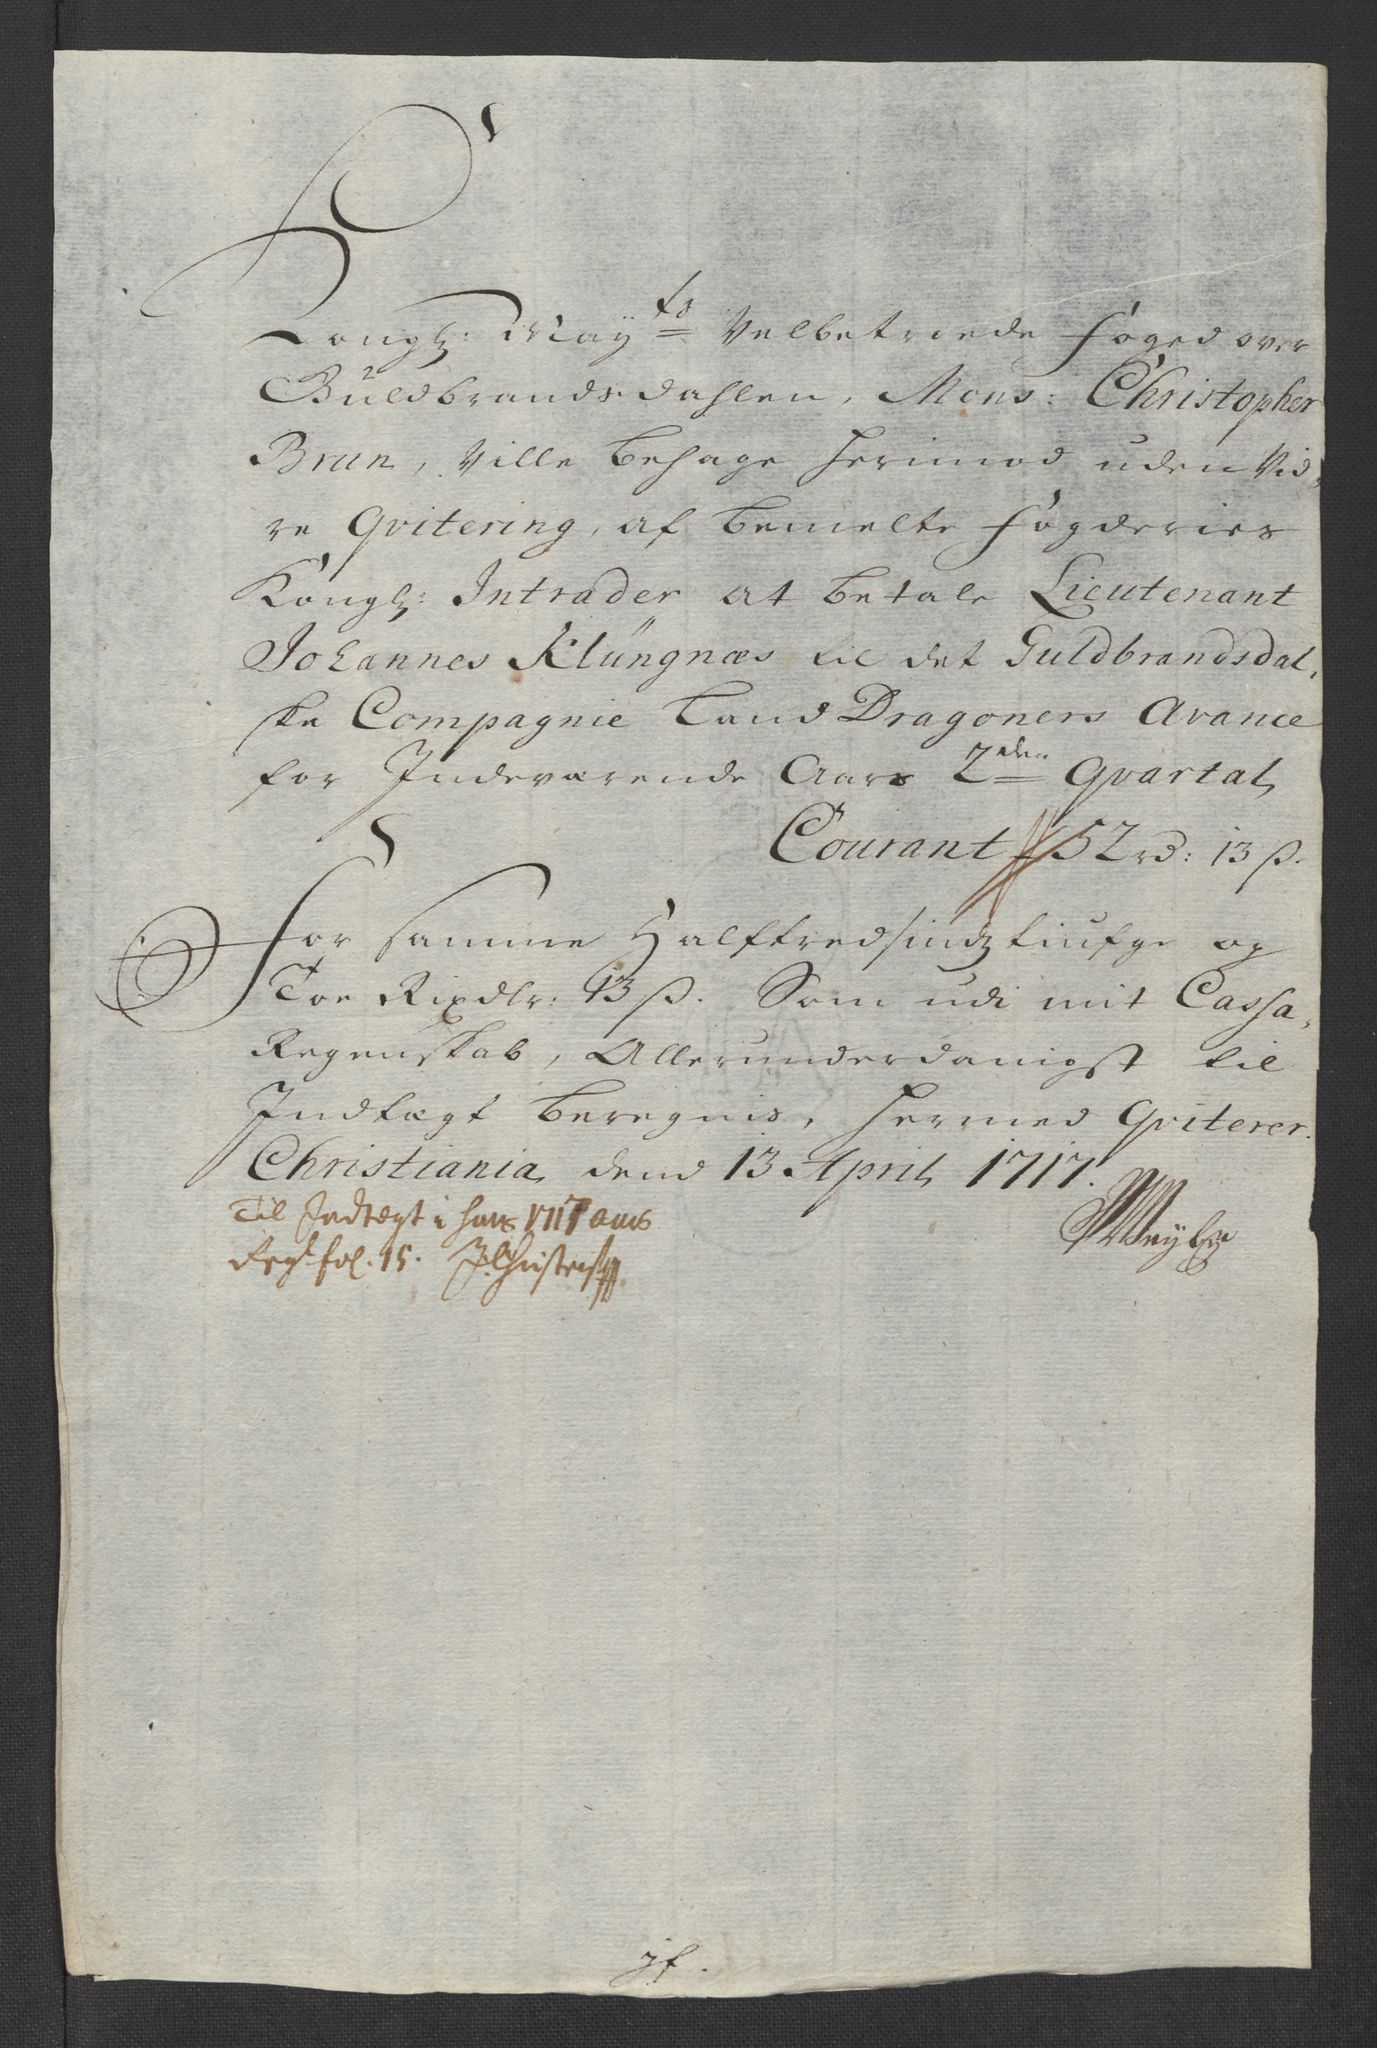 Kongl: Mayts Velbetroede foged over
Guldbrandsdahlen, Mons: Christopher
Brun, Ville behage herimod uden Vid,
re Qvitering, af bemelte fogderies
Kongl: Intrader at betale Lieutenant
Johannes Klüngnæs til det Guldbrandsdal,
ske Compagnie Land Dragoners Avance
for Indeværende Aars 2den Qvartal,
Courant 52 rd: 13 ß.
For samme Halftredsindztiufge og
Toe Rixdlr: 13 ß. Som udi mit Cassa,
Regenskab, Allerunderdanigst til
Indtægt beregnis, hermed Qviterer.
Christiania, dend 13 April 1717.
Til Indtegt i hans 1717 aars
Regs. fol. 15.